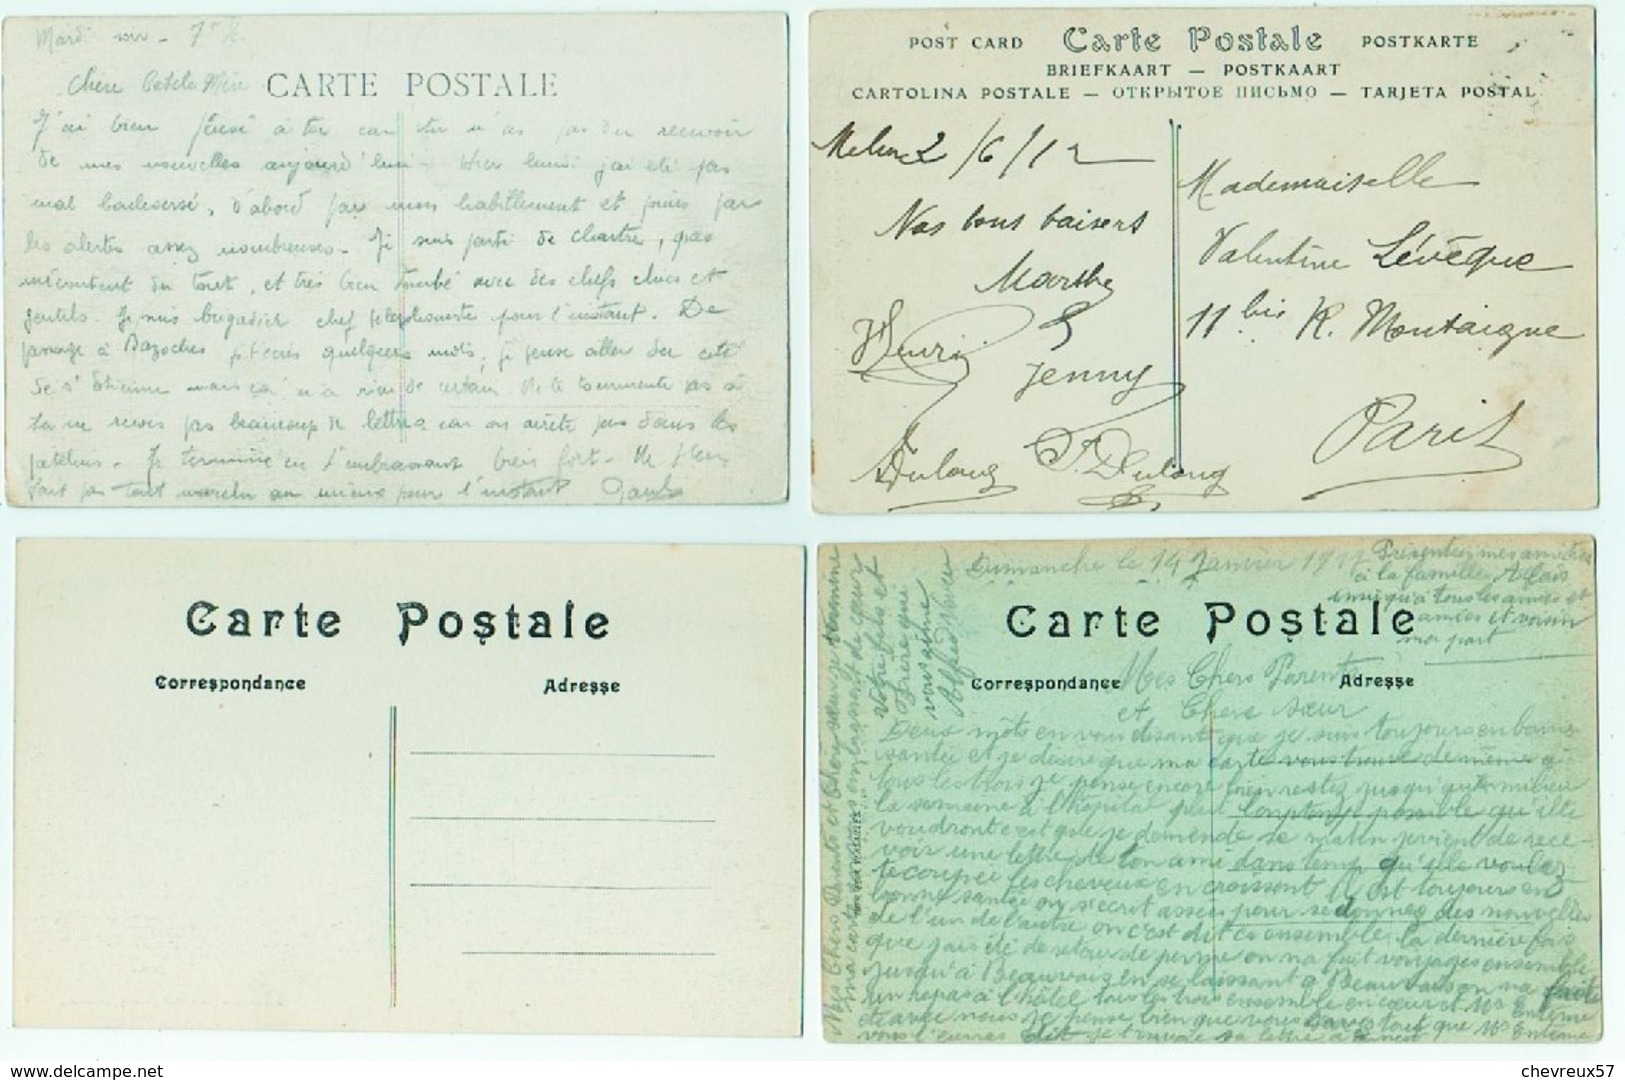 Mardi soir - 7h
Chère Petite Mère
CARTE POSTALE
J'ai bien pensé à toi car tu n'as pas du recevoir
de mes nouvelles aujourd'hui - Hier lundi j'ai été pas
mal bouleversé, d'abord par mon habillement et puis par
les alertes assez nombreuses - Je suis parti de Chartre, pas
mécontent du tout, et très bien tombé avec des chefs chics et
gentils. Je suis brigadier chef pour l'instant. De
passage à Bazoches quelques mots, je pense aller du coté
de mais ça n'a rien de certain. Ne te tourmente pas si
tu ne reçois pas beaucoup de lettres car on arrête pas dans les
patelins - Je termine en t'embrassant bien fort -
fait pas tout au mieux pour l'instant
POST CARD Carte Postale POSTKARTE
BRIEFKAART — POSTKAART
CARTOLINA POSTALE — ОТКРЫТОЕ ПИСЬМО — TARJETA POSTAL
Melun 2/6/12
Nos bons baisers
Marthe
Henri
Jenny
Dulong
Dulong
Mademoiselle
Valentine Lévêque
11 bis R. Montaigne
Paris
Carte Postale
Correspondance Adresse
Dimanche le 14 Janvier 1917
Présentez mes amitiés
à la famille Allais
tous les amies et
amies et voisin
ma part
Carte Postale
Correspondance Adresse
Mes Chers Parents
et Chere sœur
Deux mots en vous disant que je suis toujours en bonne
santée et je désire que ma carte vous trouve de même
tous les trois je pense encore bien restez jusqu'au milieu
la semaine à l'hopital plus longtemps possible qu'ille
voudront c'est que je demende se matin je vient de rece-
voir une lettre de ton ami dans temp qu'elle voulez
te coupée les cheveux en croissent il est toujours en
bonne santée on s'ecrit assez pour se donnez des nouvelles
de l'un de l'autre on c'est dit ensemble la dernière fois
que jais été de retour de perme on na fait voyages ensemble
jusqu'à Beauvais en se laissant à Beauvais on na faite
un repas à l'hôtel tous les trois ensemble
avec nous je pense bien que vous savez tout que
vous l'auras dit je t'envoie sa lettre
Mes Chers Parents et Chere sœur je termine
ma carte en vous enbrassant de cœur
Votre fils et
Frère qui
vous aime
Alfred
chevreux57
www.delcampe.net